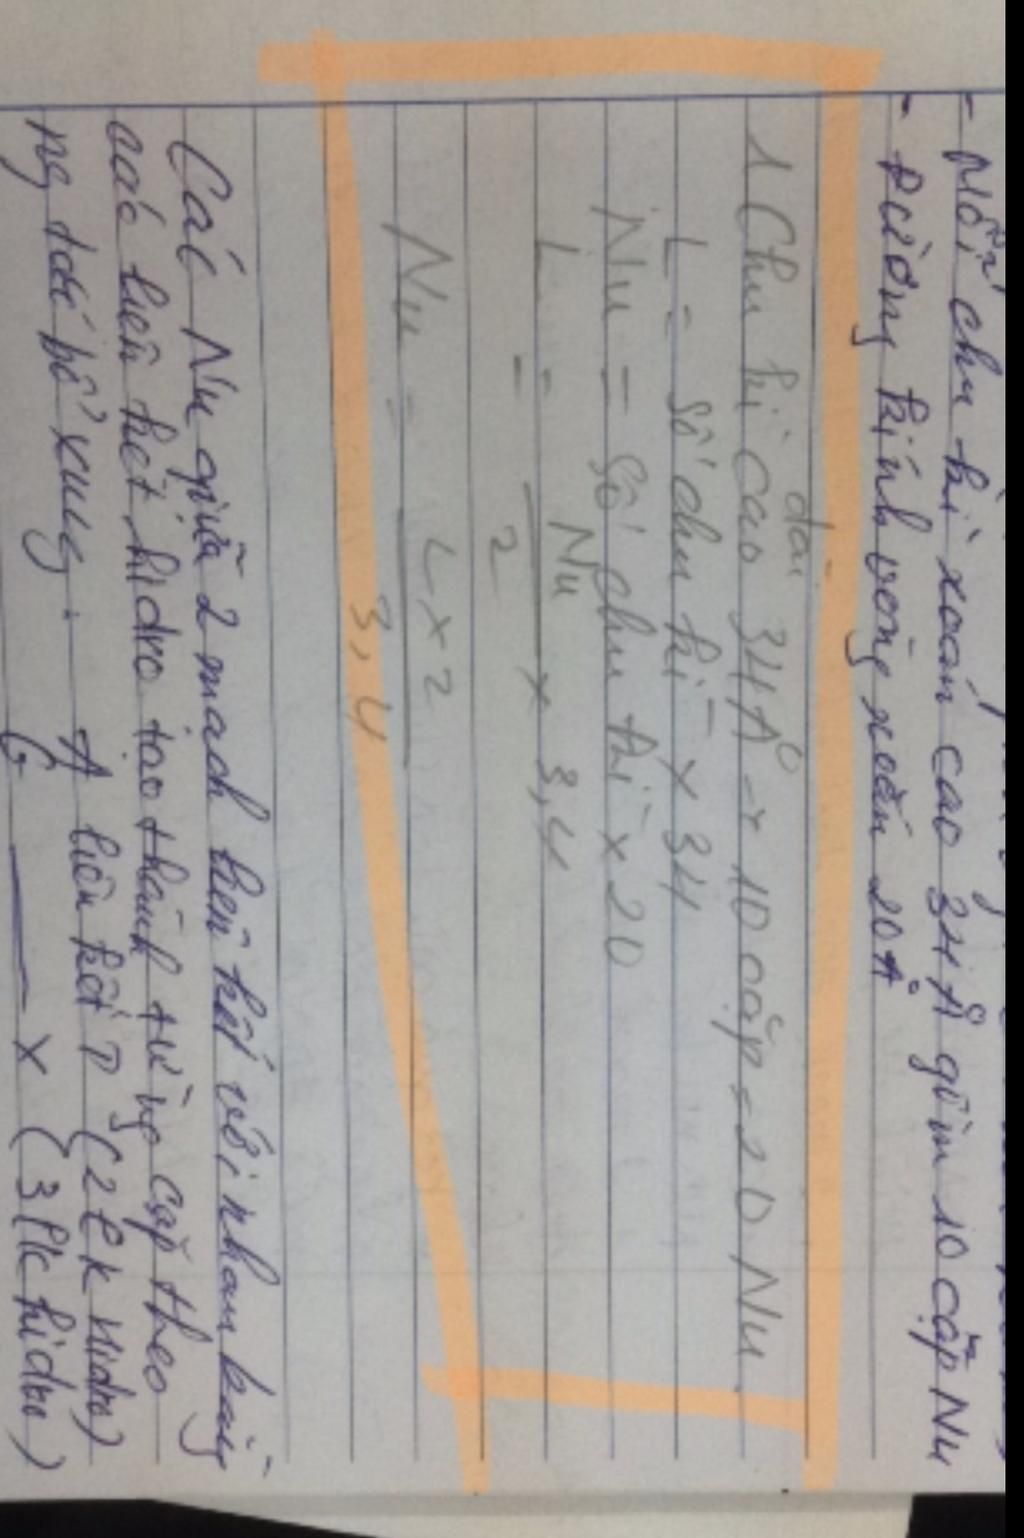 - Mỗi chu kì xoắn cao 34A° gồm 10 cặp Nu
- Đường kính vòng xoắn 20A°
dài
1 Chu kì cao 34A° → 10 cặp = 20 Nu
L = số chu kì × 34
Nu = Số chu kì × 20
L = Nu / 2 × 3,4
Nu = L × 2 / 3,4
Các Nu giữa 2 mạch liên kết với nhau bằng
các liên kết hidro tạo thành từng cặp theo
ng tắc bổ xung. A liên kết T (2 lk hidro)
G — X (3 lk hidro)